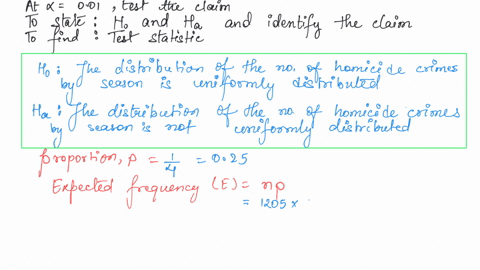 At α = 0.01, test the claim
To state: H₀ and Ha and identify the claim
To find: Test statistic
H₀: The distribution of the no. of homicide crimes
by season is uniformly distributed
Ha: The distribution of the no of homicide crimes
by season is not uniformly distributed
proportion, p = 1/4 = 0.25
Expected frequency (E) = np
= 1205 x